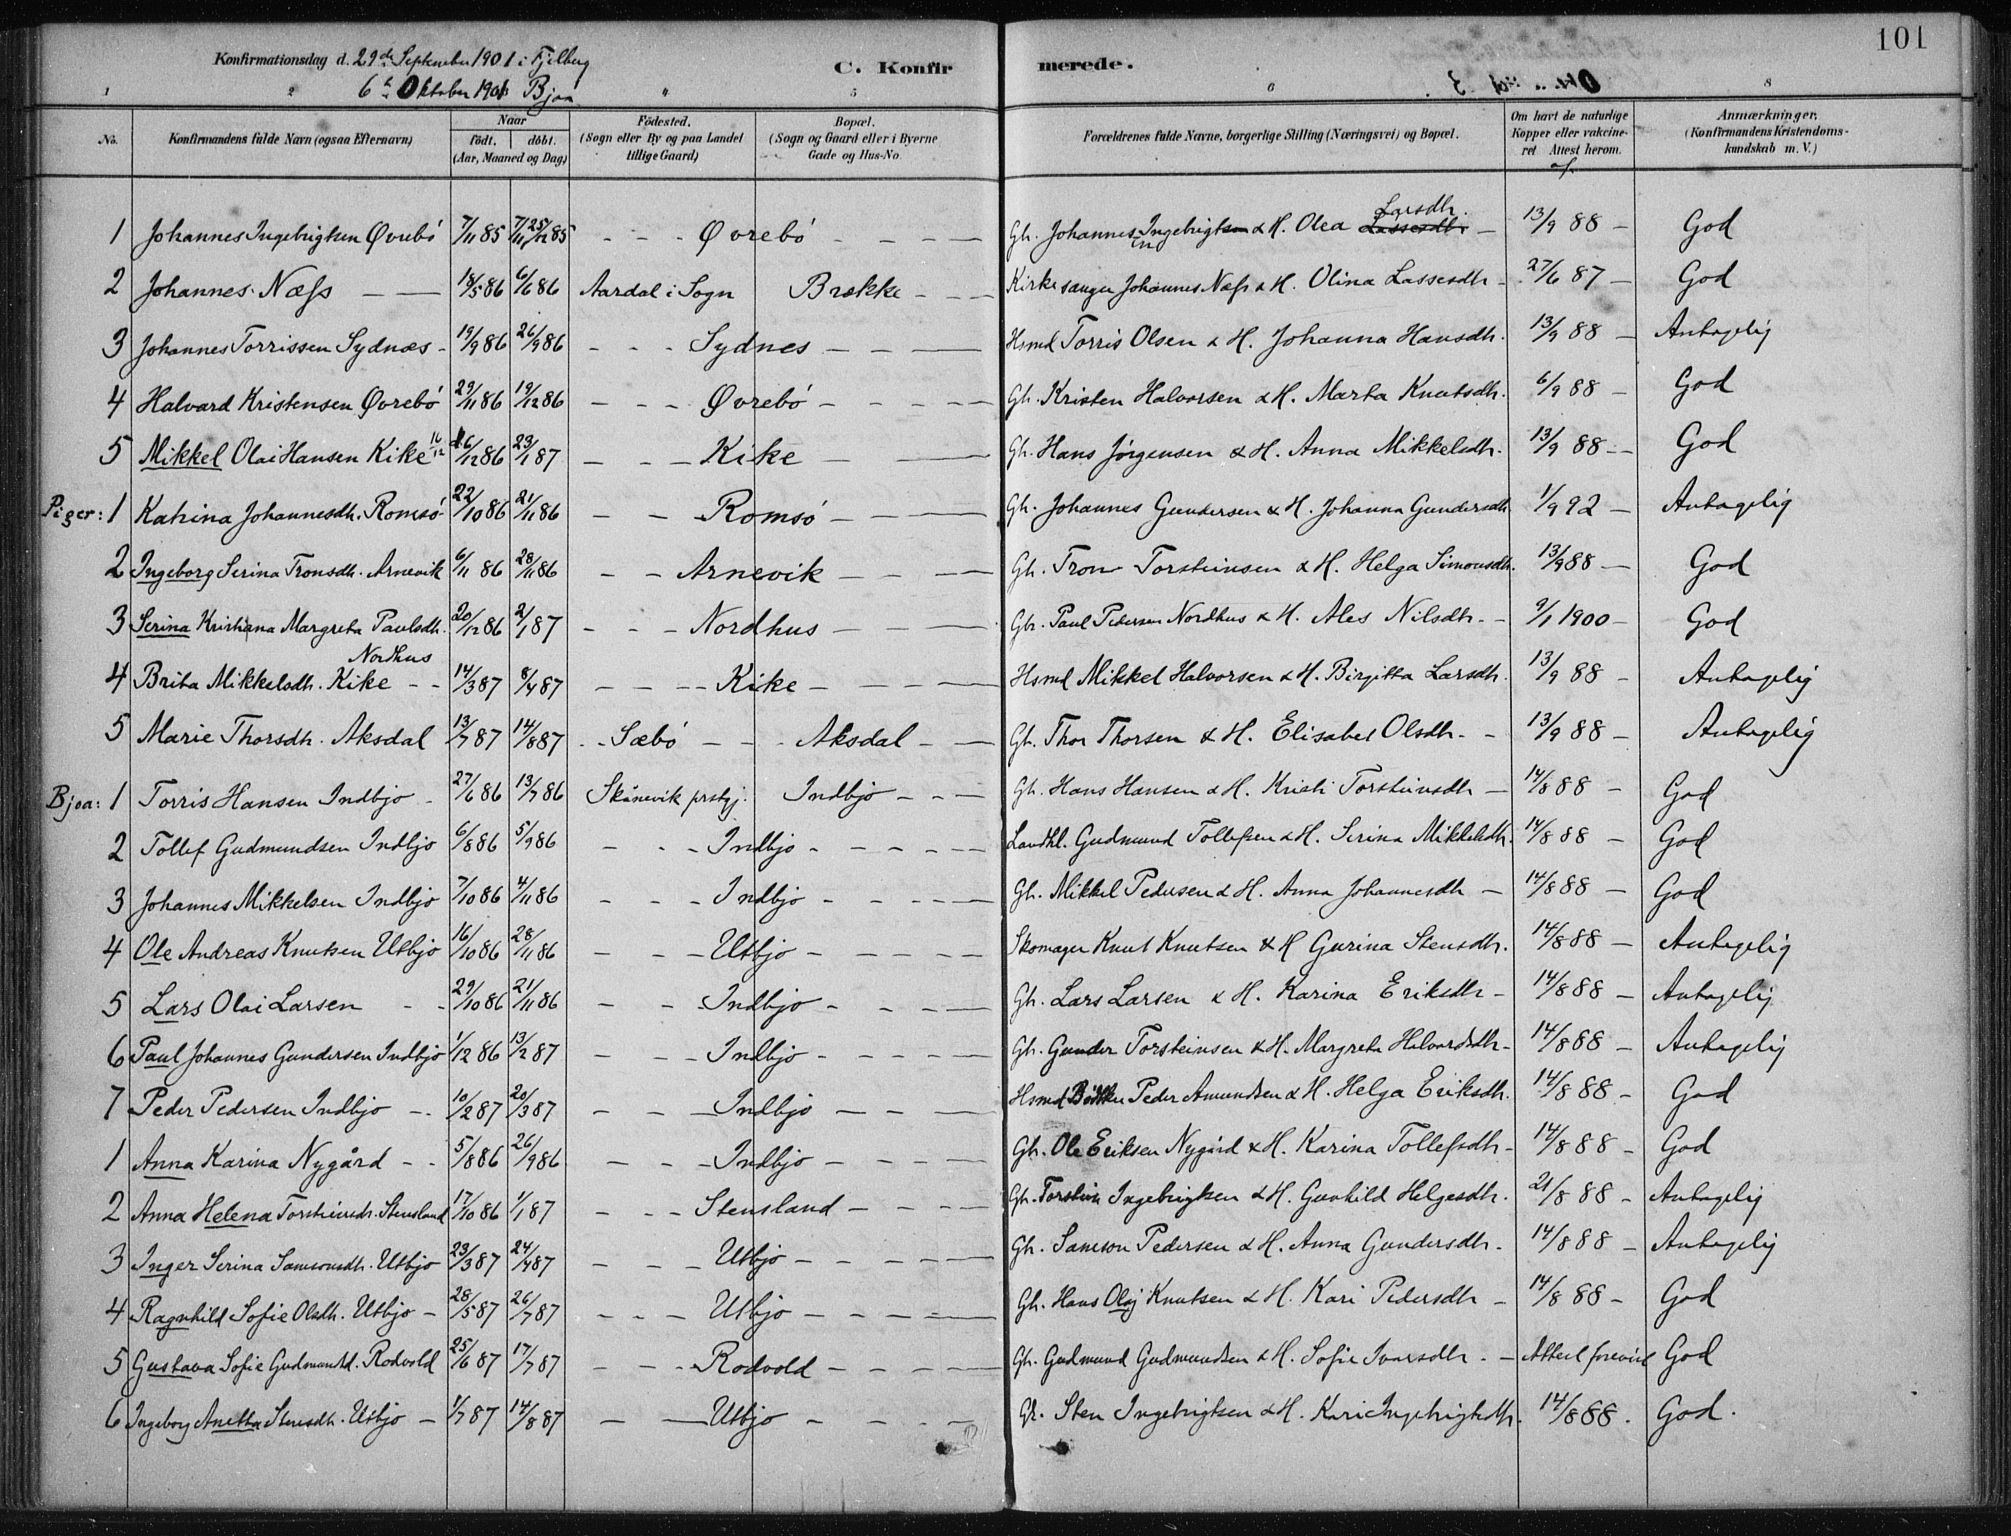 101
Konfirmationsdag d. 29de September 1901 i Fjelberg
6te Oktober 1901 Bjoa
C. Konfirmerede.
1 2 4 5 6 8
No. Konfirmandens fulde Navn (ogsaa Efternavn) Naar födt. döbt. (Aar, Maaned og Dag) Födested. (Sogn eller By og paa Landet tillige Gaard) Bopæl. (Sogn og Gaard eller i Byerne Gade og Hus-No. Forældrenes fulde Navne, borgerlige Stilling (Næringsvei) og Bopæl. Om havt de naturlige Kopper eller vakcineret Attest herom. Anmærkninger. (Konfirmandens Kristendomskundskab m. V.)
1 Johannes Ingebrigtsen Øvrebó 7/11 85 7/11 25/12 85 - - - Øvrebó - - - - Gb. Johannes Ingebrigtsen & H. Olea Lassesdtr. Larsdtr. - 13/9 88 - God
2 Johannes Næss - - 18/5 86 6/6 86 Aardal i Sogn Brække - - - Kirkesanger Johannes Næss & H. Olina Lassesdtr - 27/6 87 - God
3 Johannes Torrissen Sydnæs - 19/9 86 26/9 86 - - - Sydnes - - - Hsmd Torris Olsen & H. Johanna Hansdtr. 13/9 88 - Antagelig
4 Halvard Kristensen Øvrebó 29/11 86 19/12 86 - - - Øvrebó - - - - - Gb. Kristen Halvorsen & H. Marta Knutsdtr. 6/9 88 - God
5 Mikkel Olai Hansen Kike 16/12 16/12 86 23/1 87 - - - Kike - - - Gb. Hans Jørgensen & H. Anna Mikkelsdtr. 13/9 88 - - God
Piger: 1 Katrina Johannesdtr. Romsó 22/10 86 21/11 86 - - Romsó - - - Gb. Johannes Gundersen & H. Johanna Gundersdtr 1/9 92 - Antagelig
2 Ingeborg Serina Tronsdtr. Arnevik 6/11 86 28/11 86 - - Arnevik - - - - Gb. Tron Torsteinsen & H. Helga Simonsdtr. 13/9 88 - God
3 Serina Kristiana Margreta Paulsdtr. 20/12 86 2/1 87 - - - Nordhus - - - Gbr. Paul Pedersen Nordhus & H. Ales Nilsdtr. - 9/1 1900 - God
Nordhus
4 Brita Mikkelsdtr. Kike - - 14/3 87 8/4 87 - - - - Kike - - - Hsmd Mikkel Halvorsen & H. Birgitta Larsdtr. 13/9 88 - Antagelig
5 Marie Thorsdtr. Aksdal 13/7 87 14/8 87 - - Sæbó - - - Aksdal - - Gb. Thor Thorsen & H. Elisabet Olsdtr. - 13/9 88 - Antagelig
Bjoa: 1 Torris Hansen Indbjo - 27/6 86 13/7 86 Skånevik prstgj. Indbjo - - - Gb. Hans Hansen & H. Kristi Torsteinsdtr - 14/8 88 - God
2 Tollef Gudmundsen Indbjo 6/8 86 5/9 86 - - - Indbjo - - - - - Landhl. Gudmund Tollefsen & H. Serina Mikkelsdtr. 14/8 88 - God
3 Johannes Mikkelsen Indbjo 7/10 86 4/11 86 - - - Indbjo - - - - - Gb. Mikkel Pedersen & H. Anna Johannesdtr - 14/8 88 - God
4 Ole Andreas Knutsen Utbjo 16/10 86 28/11 86 - - - Utbjo - - - - - Skomager Knut Knutsen & H Gurina Stensdtr. 14/8 88 - Antagelig
5 Lars Olai Larsen - - 29/10 86 21/11 86 - - Indbjo - - - - Gb. Lars Larsen & H. Karina Eriksdtr - 14/8 88 - Antagelig
6 Paul Johannes Gundersen Indbjo 1/12 86 13/2 87 - - - Indbjo - - - - - Gb. Gunder Torsteinsen & H. Margreta Halvordsdtr - 14/8 88 - Antagelig
7 Peder Pedersen Indbjo - - 10/2 87 20/3 87 - - - Indbjo - - - Hsmd Bødker Peder Amundsen & H. Helga Eriksdtr. 14/8 88 - God
1 Anna Karina Nygård - - 5/8 86 26/9 86 - - - Indbjo - - - - Gb. Ole Eriksen Nygård & H. Karina Tollefsdtr - 14/8 88 - God
2 Anna Helena Torsteinsdtr. Stensland 17/10 86 1/1 87 - - - Stensland - - - - Gb. Torstein Ingebrigtsen & H. Gunhild Helgesdtr. 21/8 88 - Antagelig
3 Inger Serina Samsonsdtr. Utbjo 23/3 87 24/4 87 - - - Utbjo - - - - Gb. Samson Pedersen & H. Anna Gundersdtr - 14/8 88 - Antagelig
4 Ragnhild Sofie Olsdtr. Utbjo - 28/5 87 26/7 87 - - - Utbjo - - - - Gb. Hans Olaj Knutsen & H. Kari Pedersdtr - 14/8 88 - God
5 Gustava Sofie Gudmundsd. Rodvold 25/6 87 17/7 87 - - - Rodvold - - - - Gb. Gudmund Gudmundsen & H. Sofie Ivarsdtr. - Attest forevist God
6 Ingeborg Anetta Stensdtr. Utbjo - 1/7 87 14/8 87 - - Utbjo - - - - Gb. Sten Ingebrigtsen & H. Kari Ingebrigtsdtr. 14/8 88. God.